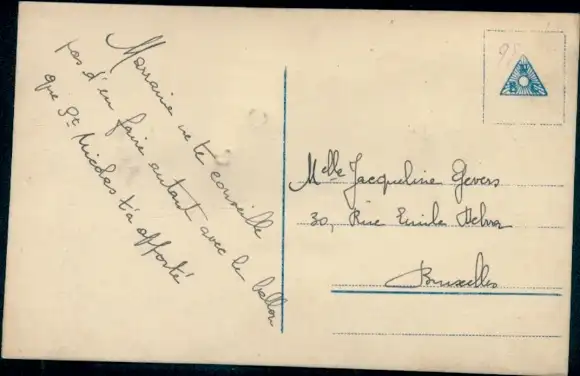 Marraine ne te conseille
pas d'en faire autant avec le ballon
que St Nicolas t'a apporté
95
Melle Jacqueline Gevers
30, Rue Emile
Bruxelles